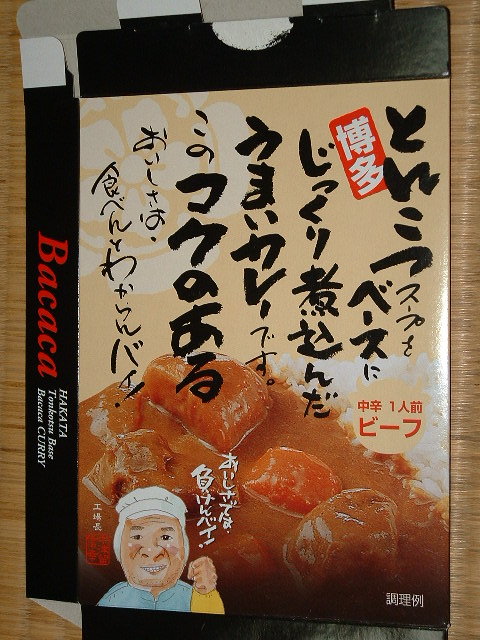 博多
とんこつスープを
ベースに
じっくり煮込んだ
うまいカレーです。
このコクのある
おいしさは、
食べんとわからんバイ!
中辛 1人前
ビーフ
おいしさでは、
負けんバイ!
工場長
調理例
Bacaca
HAKATA
Tonkotsu Base
Bacaca CURRY